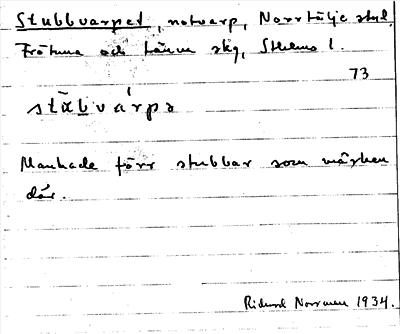 Stubbvarpet, notvarp, Norrtälje stad,
Frötuna och Länna skg, Sthlms l.
73
stäbvárpə
Man hade förr stubbar som märken
där.
Rickard Norrman 1934.